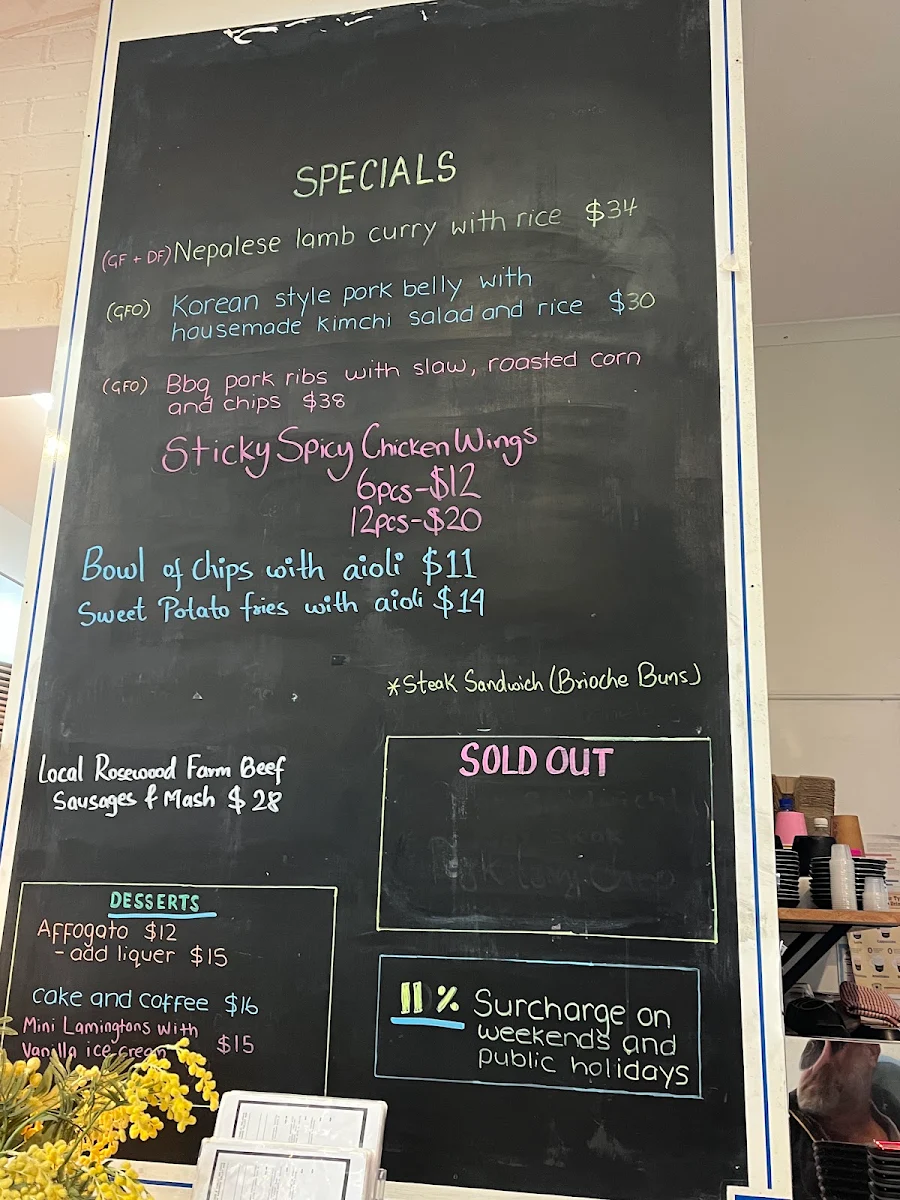 SPECIALS
(GF + DF) Nepalese lamb curry with rice $34
(GFO) Korean style pork belly with
housemade kimchi salad and rice $30
(GFO) Bbq pork ribs with slaw, roasted corn
and chips $38
Sticky Spicy Chicken Wings
6pcs-$12
12pcs-$20
Bowl of chips with aioli $11
Sweet Potato fries with aioli $14
*Steak Sandwich (Brioche Buns)
Local Rosewood Farm Beef
Sausages & Mash $28
SOLD OUT
DESSERTS
Affogato $12
- add liquer $15
cake and coffee $16
Mini Lamingtons with
Vanilla ice cream $15
11% Surcharge on
weekends and
public holidays